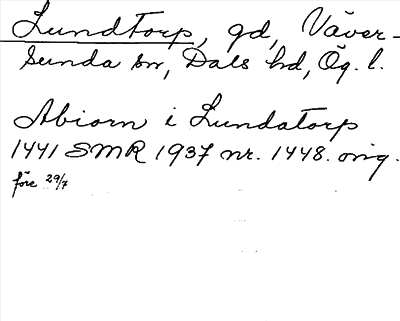 Lundtorp, gd, Väver-
sunda sn, Dals hd, Ög. l.
Abiorn i Lundatorp
1441 SMR 1937 nr. 1448. orig.
före 29/7